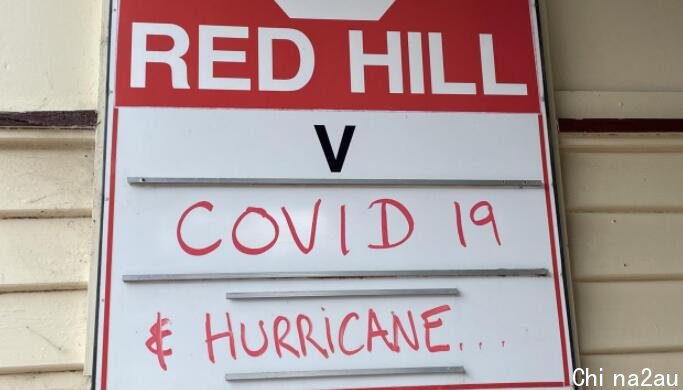 RED HILL
V
COVID 19
& HURRICANE...
Chi na2au